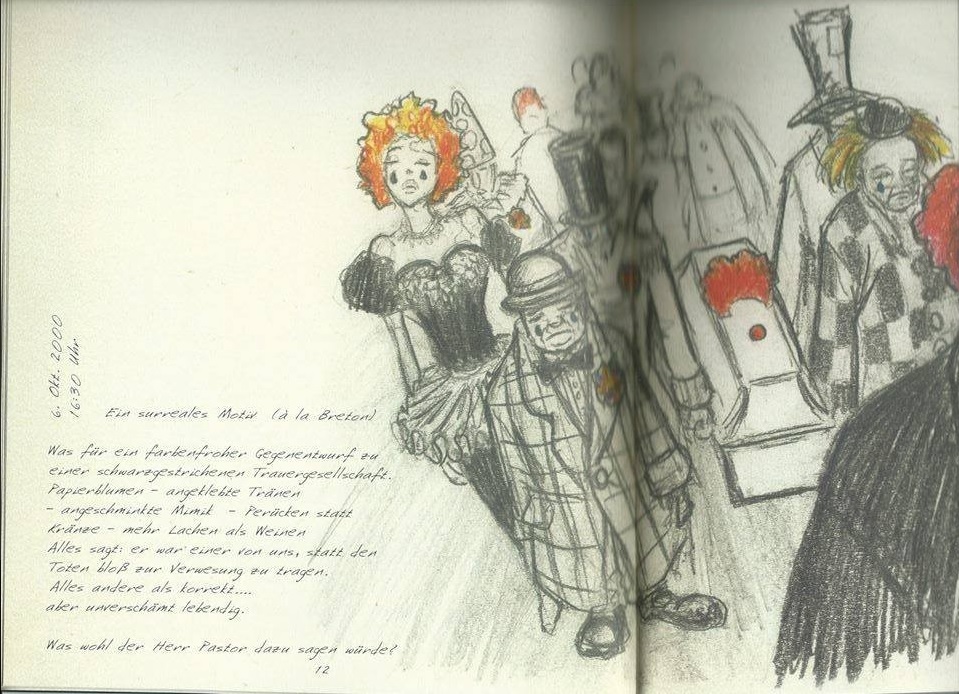 6. Okt. 2000
16:30 Uhr
Ein surreales Motiv (à la Breton)
Was für ein farbenfroher Gegenentwurf zu
einer schwarzgestrichenen Trauergesellschaft.
Papierblumen - angeklebte Tränen
- angeschminkte Mimik - Perücken statt
Kränze - mehr Lachen als Weinen
Alles sagt: er war einer von uns, statt den
Toten bloß zur Verwesung zu tragen.
Alles andere als korrekt....
aber unverschämt lebendig.
Was wohl der Herr Pastor dazu sagen würde?
12